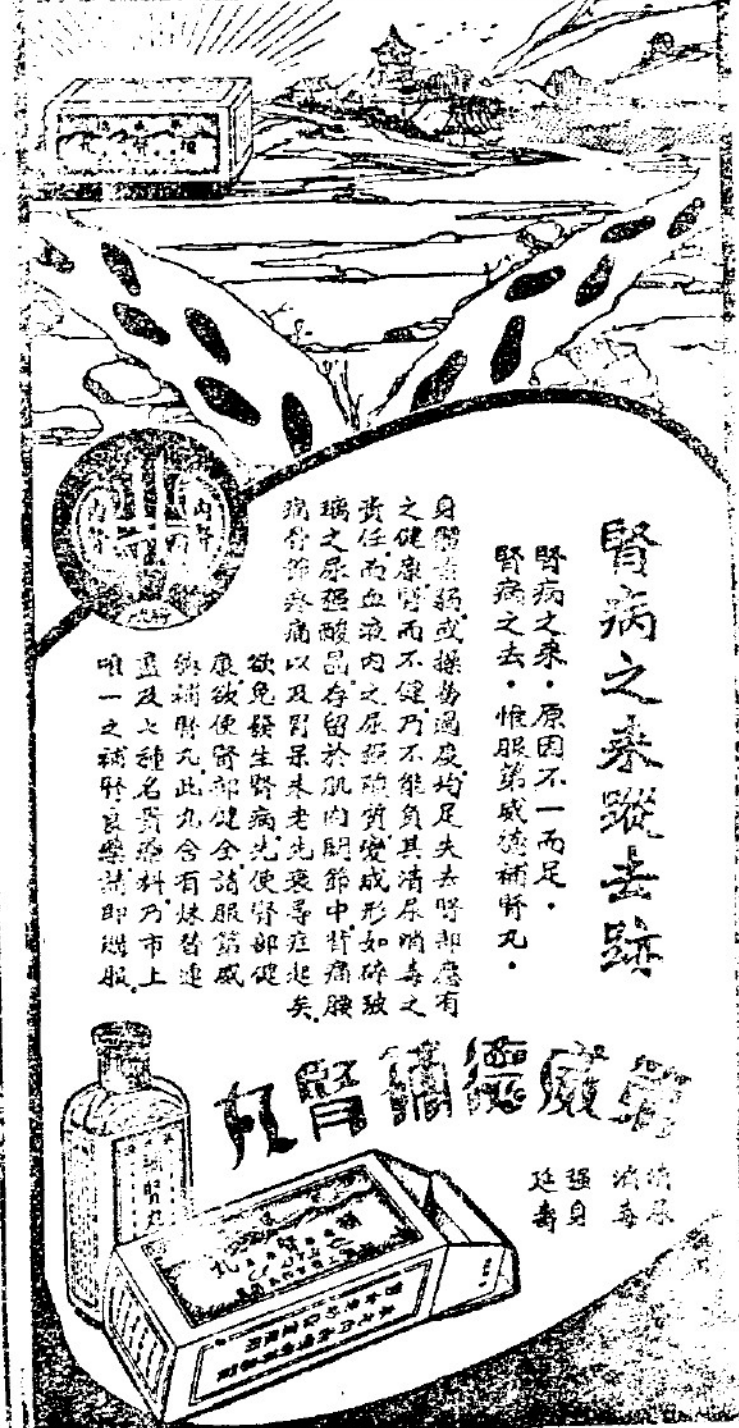 腎病之來蹤去跡
腎病之來·原因不一而足·
腎病之去·惟服第威德補腎丸·
身體素弱或操勞過度均足失去腎部應有
之健康腎而不健乃不能負其清尿消毒之
責任而血液內之尿强酸質變成形如碎玻
璃之尿强酸晶存留於肌肉關節中背痛腰
痛骨節疼痛以及胃呆未老先衰等症起矣
欲免發生腎病先使腎部健
康欲使腎部健全請服第威
德補腎丸此丸含有
及七種名貴藥料乃市上
唯一之補腎良藥請即購服
第威德補腎丸
清尿
消毒
强身
延壽
內腎
內腎
補腎丸